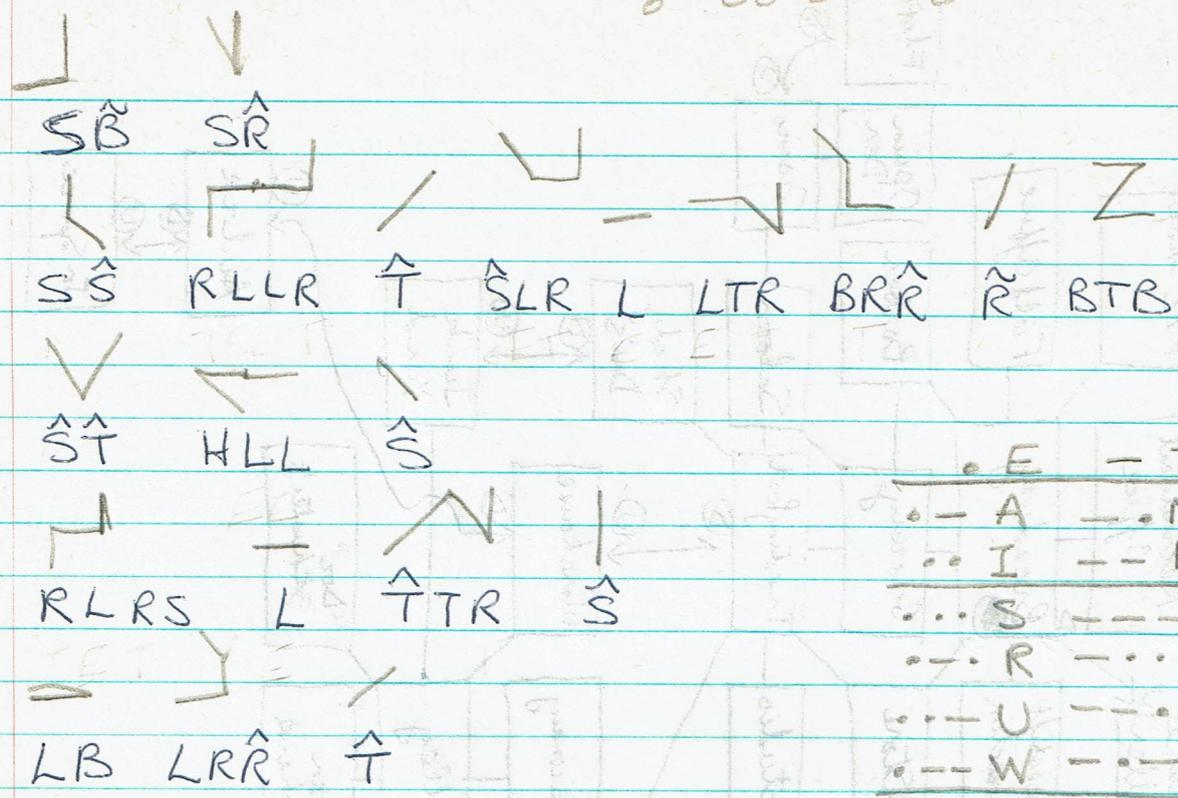 SB̃ SR̂
SŜ RLLR T̂ ŜLR L LTR BRR̂ R̃ BTB
ŜT̂ HLL Ŝ
RLRS L T̂TR Ŝ
LB LRR̂ T̂
. E –
.– A –.
.. I ––
... S –––
.–. R –..
..– U ––.
.–– W –.–